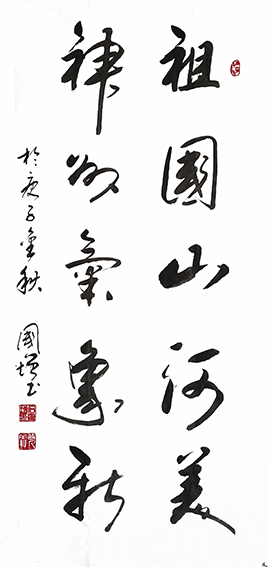 祖國山河美
神州氣象新
於庚子金秋
國增书